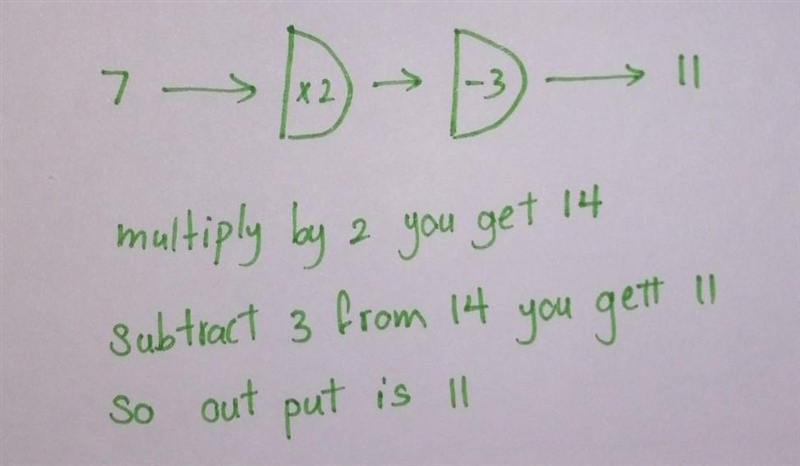 7 → ×2 → -3 → 11
multiply by 2 you get 14
subtract 3 from 14 you gett 11
so out put is 11